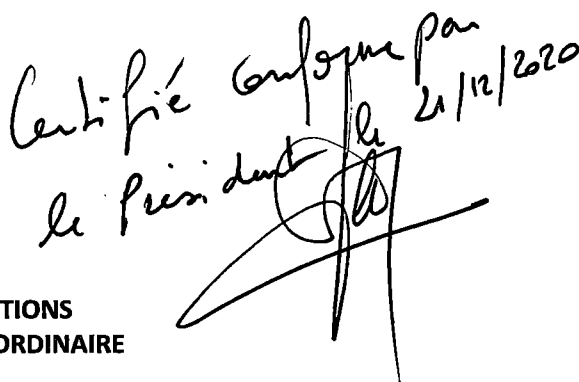 Certifié conforme par
le Président le 21/12/2020
TIONS
ORDINAIRE